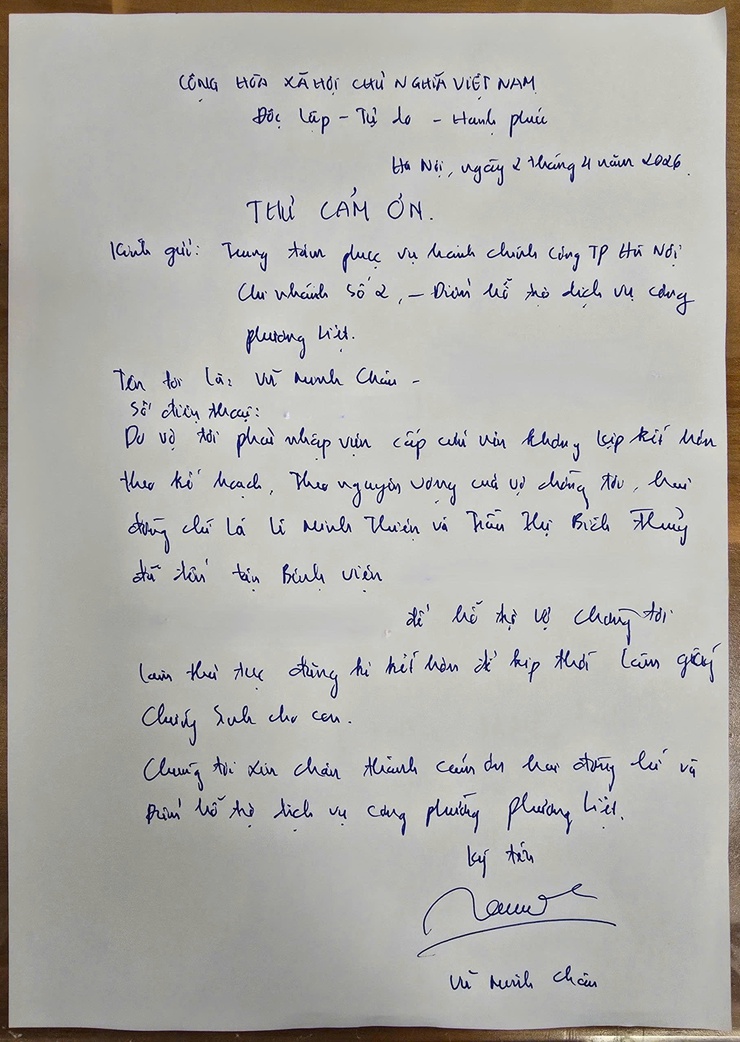 CỘNG HÒA XÃ HỘI CHỦ NGHĨA VIỆT NAM
Độc lập - Tự do - Hạnh phúc
Hà Nội, ngày 2 tháng 4 năm 2026.
THƯ CẢM ƠN.
Kính gửi: Trung tâm phục vụ hành chính công TP Hà Nội
Chi nhánh số 2, - Điểm hỗ trợ dịch vụ công
phương Liệt.
Tên tôi là: Vũ Minh Châu -
Số điện thoại:
Do vợ tôi phải nhập viện cấp cứu nên không kịp kết hôn
theo kế hoạch, Theo nguyện vọng của vợ chồng tôi, hai
đồng chí là Minh Thiện và Trần Thị Bích Thủy
đã đến tận Bệnh viện
để hỗ trợ vợ chồng tôi
làm thủ tục đăng kí kết hôn để kịp thời làm giấy
Chứng Sinh cho con.
Chúng tôi xin chân thành cảm ơn hai đồng chí và
Điểm hỗ trợ dịch vụ công phường phương Liệt.
Ký tên
Vũ Minh Châu